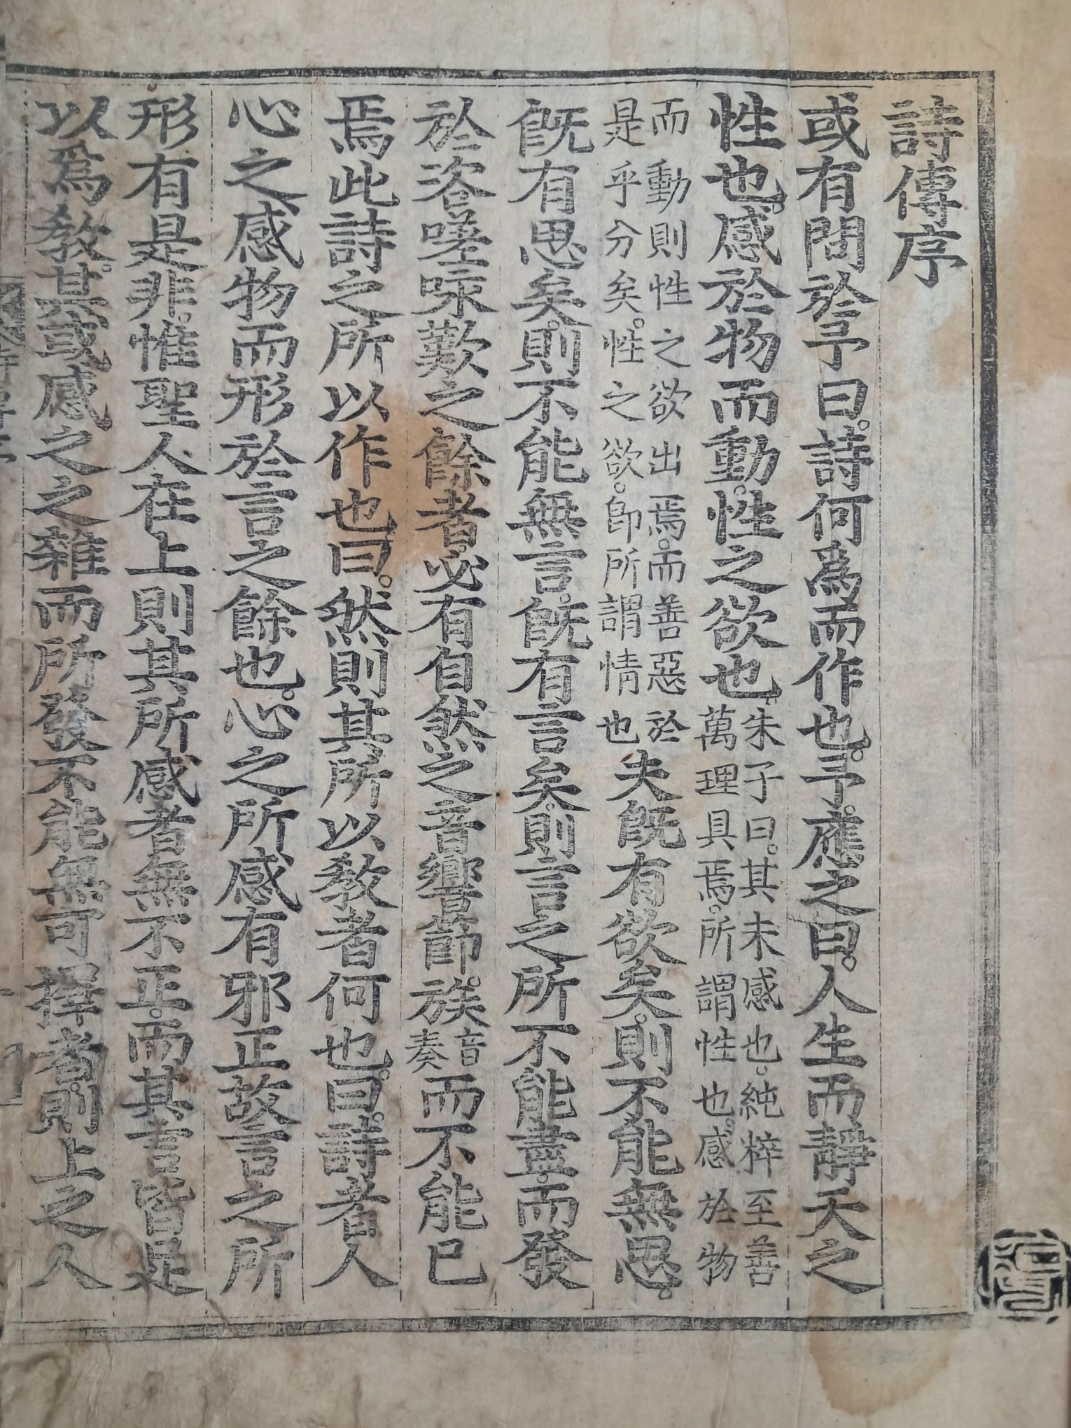 詩傳序
或有問於予曰。詩何爲而作也。予應之曰。人生而靜天之
性也。感於物而動。性之欲也。朱子曰。其未感也。純粹至善
萬理具焉。所謂性也。感於物
而動則性之欲出焉。而善惡於
是乎分矣。性之欲。卽所謂情也夫旣有欲矣。則不能無思。
旣有思矣。則不能無言。旣有言矣。則言之所不能盡。而發
於咨嗟咏歎之餘者。必有自然之音響節。族音
奏而不能已
焉此詩之所以作也。曰。然則其所以敎者何也。曰。詩者。人
心之感物而形於言之餘也。心之所感有邪正故言之所
形有是非。惟聖人在上則其所感者無不正。而其言皆足
以爲敎。其或感之之雜而所發不能無可擇者。則上之人